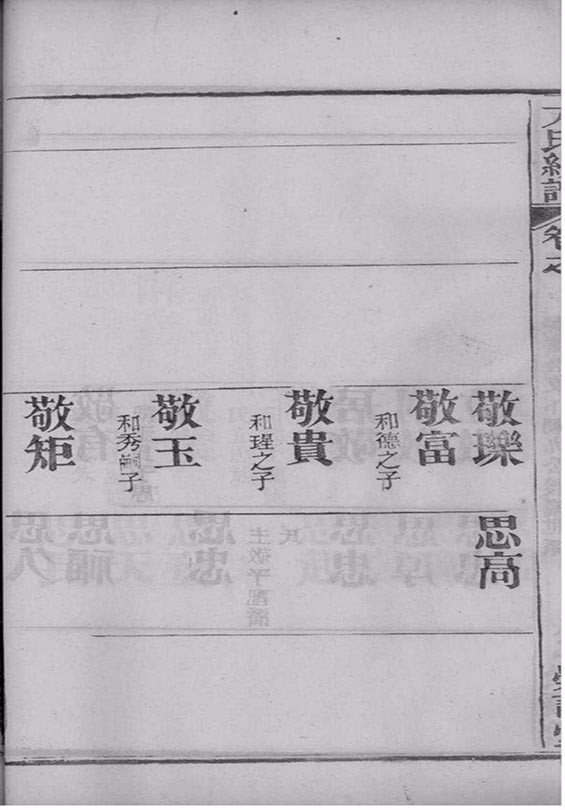 氏統譜
卷之
敬瓅
思高
敬富
和德之子
敬貴
和瑆之子
敬玉
和秀嗣子
敬矩